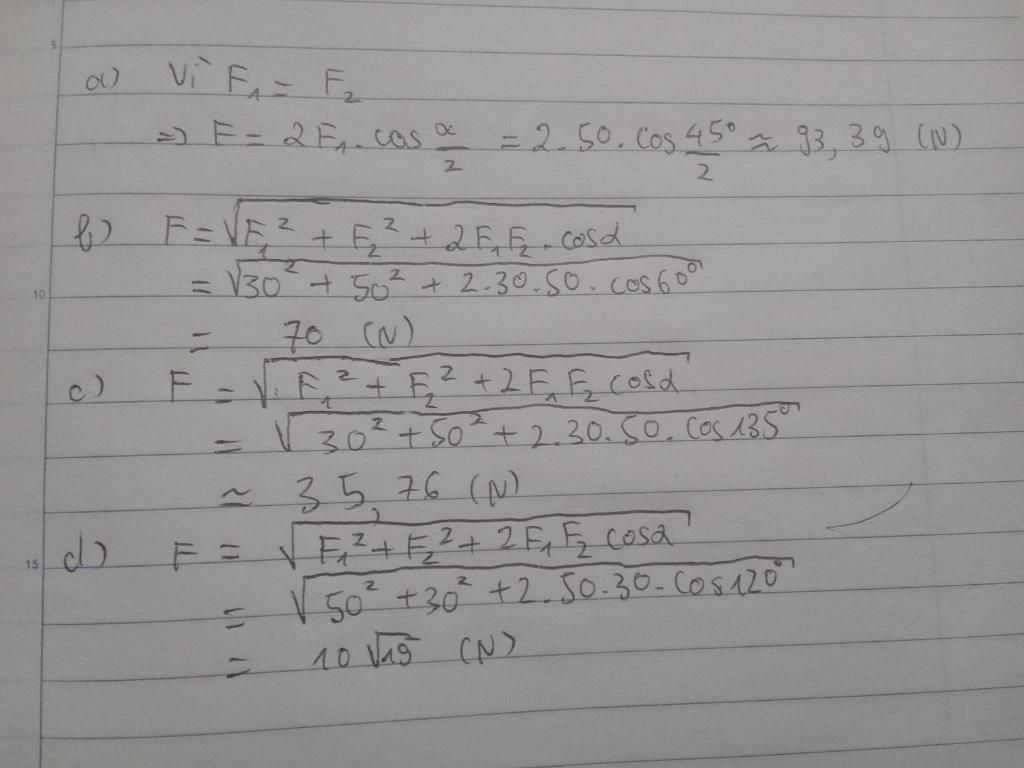 5
a) Vì F₁ = F₂
=> F = 2F₁.cos α/2 = 2.50.cos 45°/2 ≈ 93,39 (N)
b) F = √(F₁² + F₂² + 2F₁F₂.cosα)
10
= √(30² + 50² + 2.30.50.cos60°)
= 70 (N)
c) F = √(F₁² + F₂² + 2F₁F₂cosα)
= √(30² + 50² + 2.30.50.cos135°)
≈ 35,76 (N)
15
d) F = √(F₁² + F₂² + 2F₁F₂cosα)
= √(50² + 30² + 2.50.30.cos120°)
= 10√19 (N)